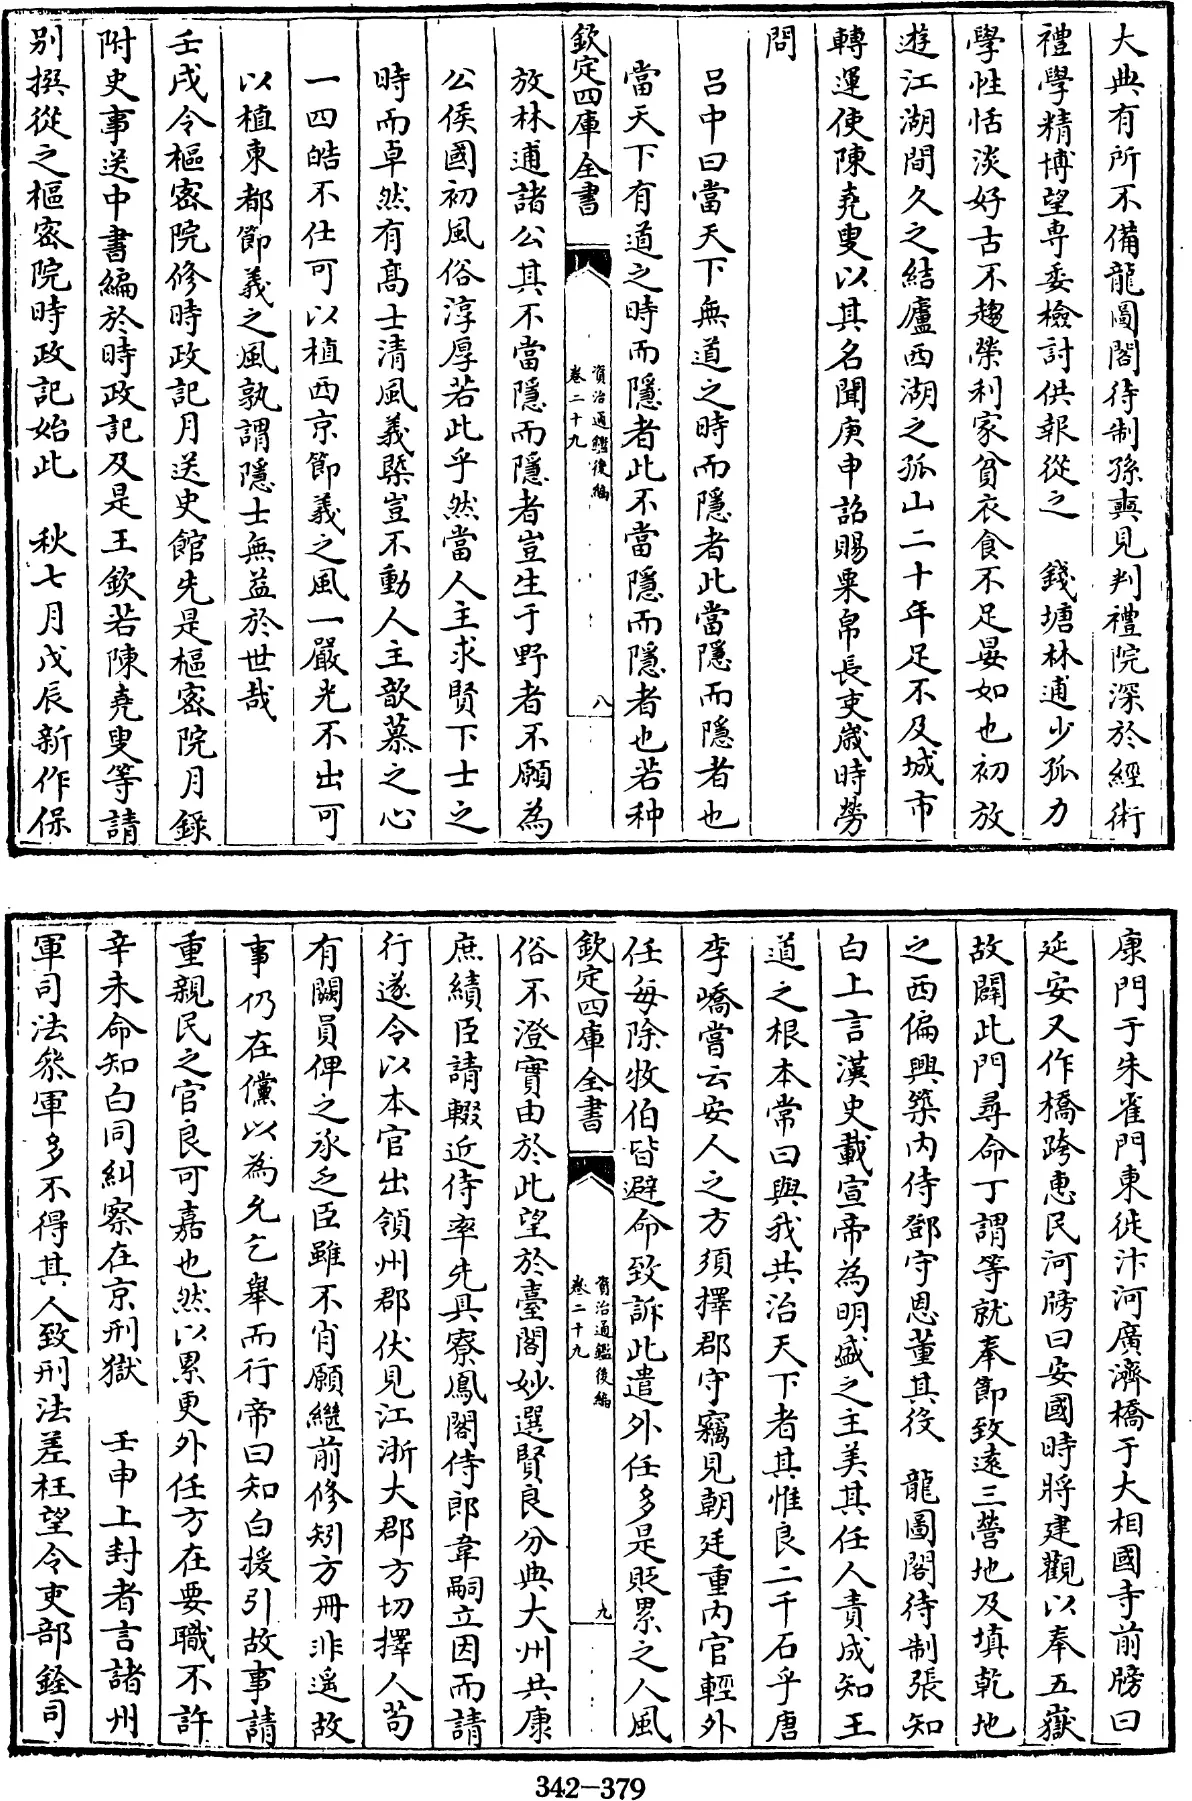 大典有所不備龍圖閣待制孫奭見判禮院深於經術
禮學精博望専委檢討供報從之　錢塘林逋少孤力
學性恬淡好古不趨榮利家貧衣食不足晏如也初放
遊江湖間久之結廬西湖之孤山二十年足不及城市
轉運使陳堯叟以其名聞庚申詔賜粟帛長吏歲時勞
問
呂中曰當天下無道之時而隱者此當隱而隱者也
當天下有道之時而隱者此不當隱而隱者也若种
欽定四庫全書
資治通鑑後編
卷二十九
八
放林逋諸公其不當隱而隱者豈生于野者不願為
公侯國初風俗淳厚若此乎然當人主求賢下士之
時而卓然有髙士清風義槩豈不動人主歆慕之心
一四皓不仕可以植西京節義之風一嚴光不出可
以植東都節義之風孰謂隱士無益於世哉
壬戌令樞密院修時政記月送史館先是樞密院月錄
附史事送中書編於時政記及是王欽若陳堯叟等請
別撰從之樞密院時政記始此　秋七月戊辰新作保
康門于朱雀門東徙汴河廣濟橋于大相國寺前牓曰
延安又作橋跨惠民河牓曰安國時將建觀以奉五嶽
故闢此門尋命丁謂等就奉節致遠三營地及填乾地
之西偏興築內侍鄧守恩董其役　龍圖閣待制張知
白上言漢史載宣帝為明盛之主美其任人責成知王
道之根本常曰與我共治天下者其惟良二千石乎唐
李嶠嘗云安人之方須擇郡守竊見朝廷重內官輕外
任每除牧伯皆避命致訴比遣外任多是貶累之人風
欽定四庫全書
資治通鑑後編
卷二十九
九
俗不澄實由於此望於臺閣妙選賢良分典大州共康
庶績臣請輟近侍率先具寮鳳閣侍郎韋嗣立因而請
行遂令以本官出領州郡伏見江浙大郡方切擇人茍
有闕員俾之承乏臣雖不肖願繼前修矧方冊非遥故
事仍在儻以為允乞舉而行帝曰知白援引故事請
重親民之官良可嘉也然以累更外任方在要職不許
辛未命知白同糾察在京刑獄　壬申上封者言諸州
軍司法叅軍多不得其人致刑法差枉望令吏部銓司
342-379